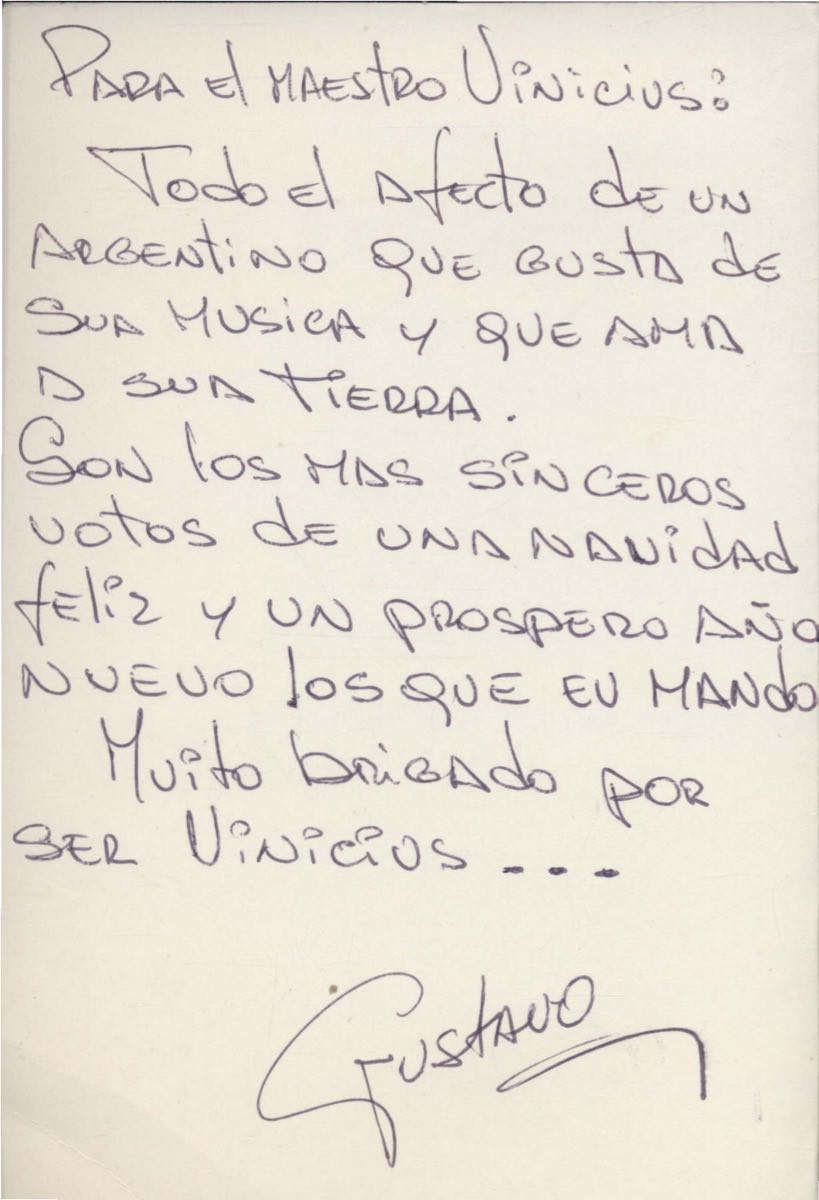 Para el maestro Vinicius:
Todo el afecto de un
argentino que gusta de
sua musica y que ama
a sua tierra.
Son los mas sinceros
votos de una navidad
feliz y un prospero año
nuevo los que eu mando
Muito brigado por
ser Vinicius ...
Gustavo